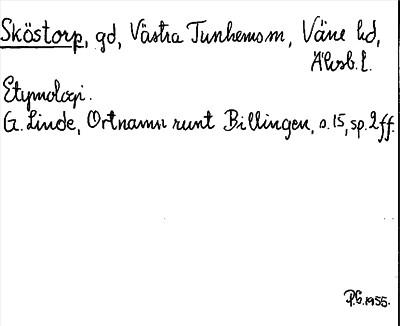 Sköstorp, gd, Västra Tunhems m, Väne hd,
Älvsb. l.
Etymologi.
G. Linde, Ortnamn runt Billingen, s. 15, sp. 2 ff.
P.G. 1955.